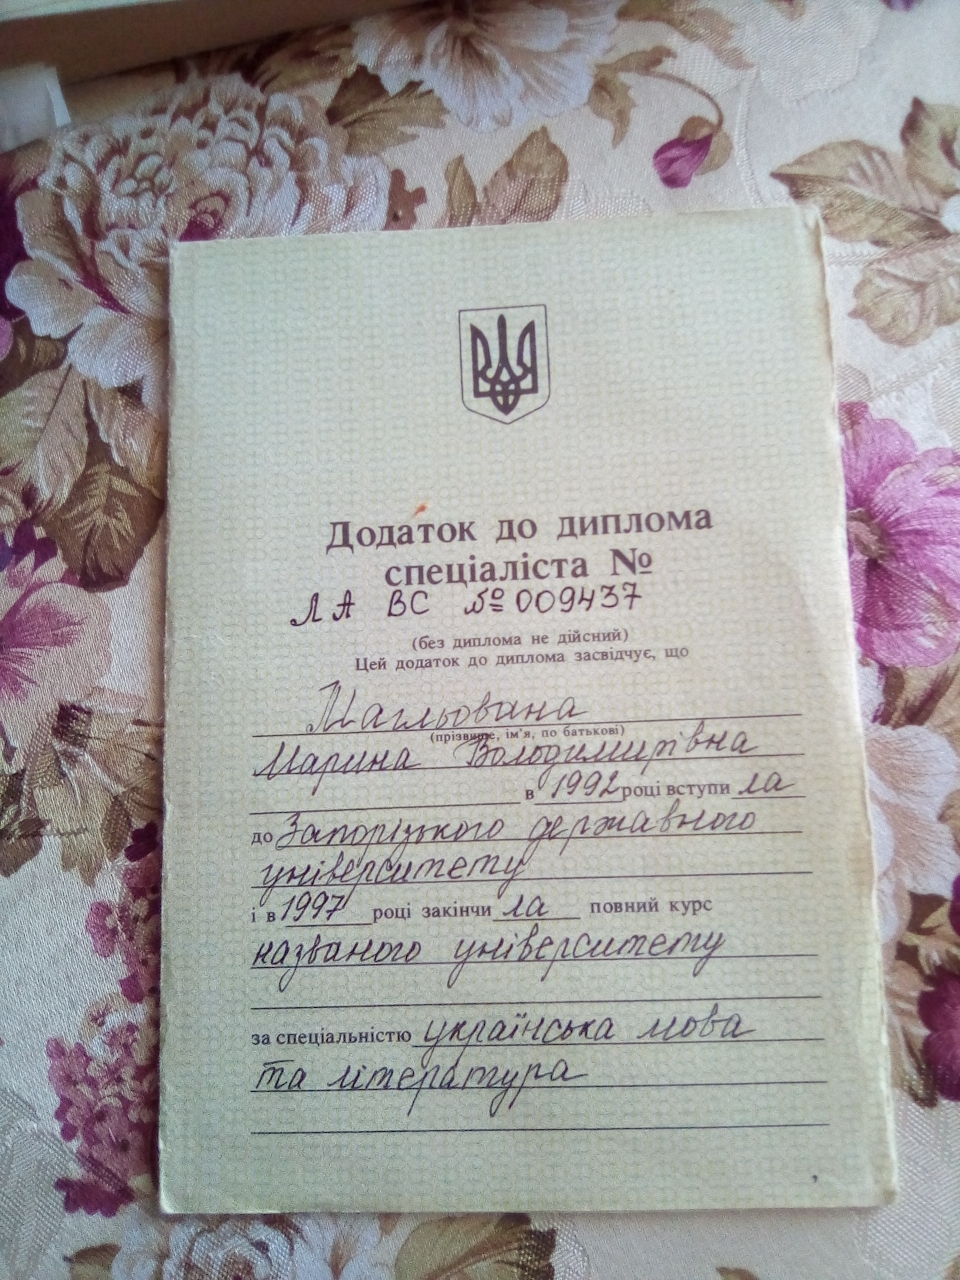 Додаток до диплома
спеціаліста №
ЛА ВС № 009437
(без диплома не дійсний)
Цей додаток до диплома засвідчує, що
Мальована
(прізвище, ім'я, по батькові)
Марина Володимирівна
в 1992 році вступи ла
до Запорізького державного
університету
і в 1997 році закінчи ла повний курс
названого університету
за спеціальністю українська мова
та література